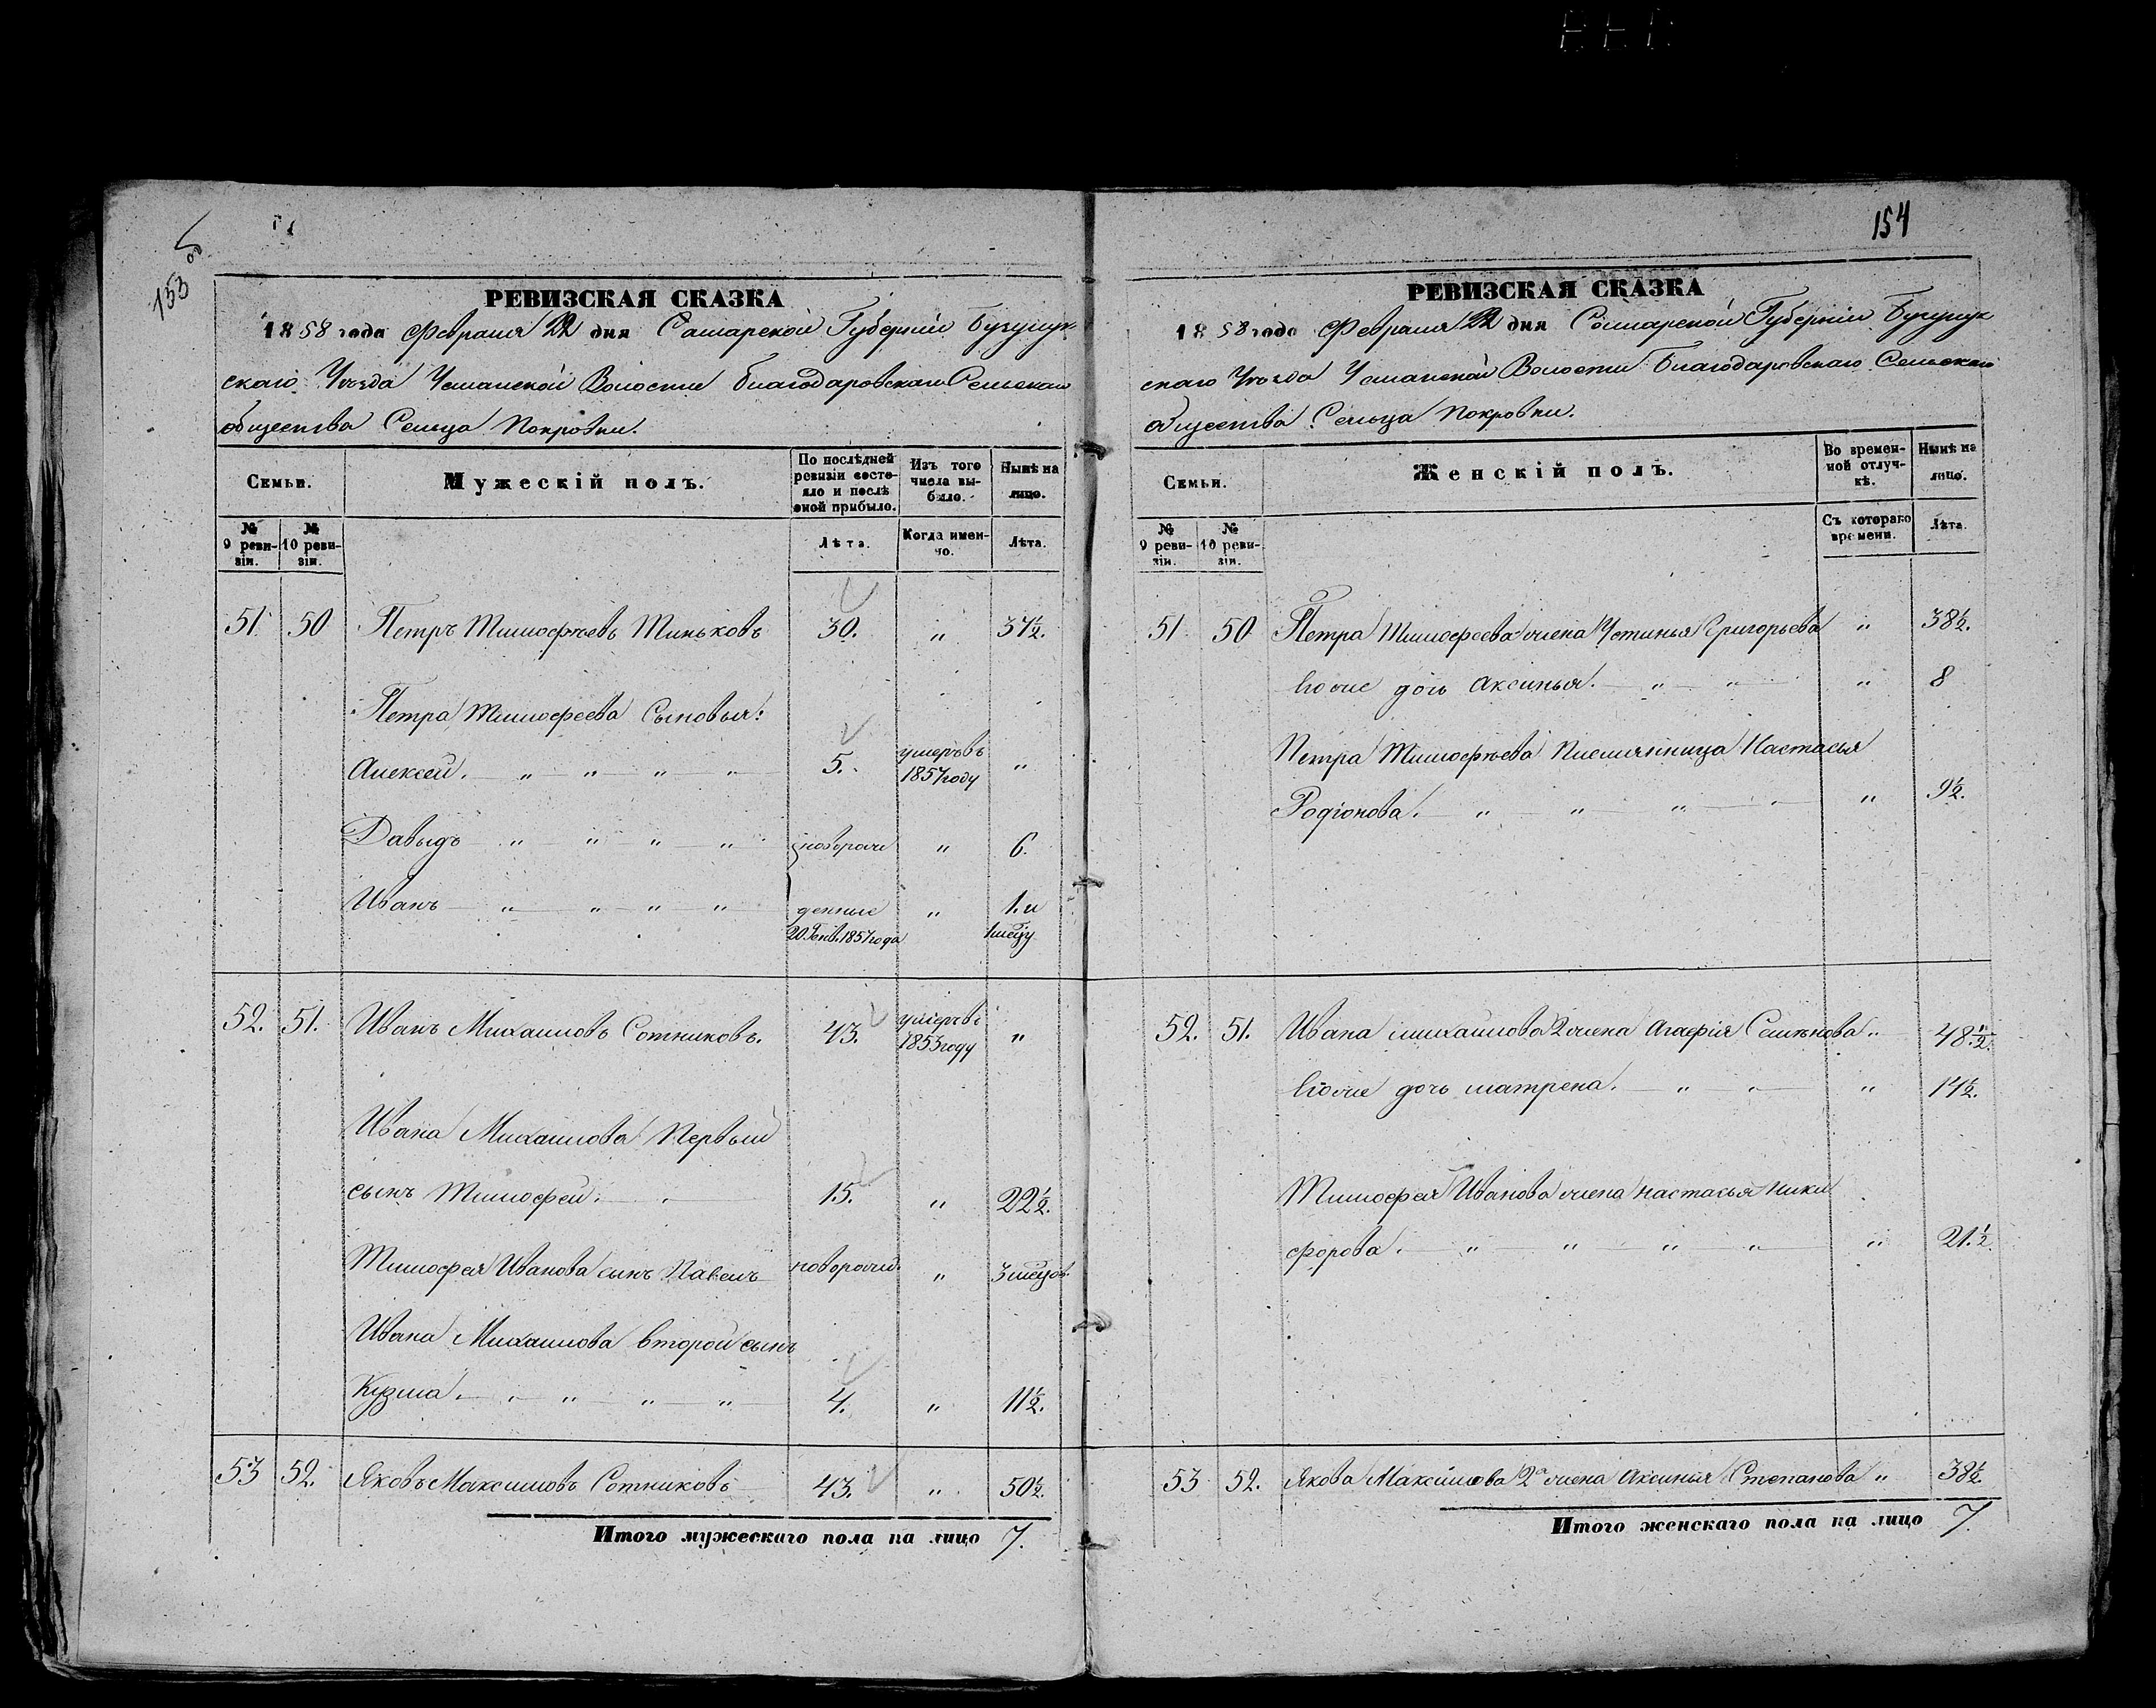 153 об
РЕВИЗСКАЯ СКАЗКА
1858 года Февраля 22 дня Самарской Губернии Бузулук
скаго Уѣзда Усманской Волости Благодаровскаго Сельскаго
общества Сельца Покровки.
Семьи.
Мужескій полъ.
По послѣдней ревизіи состояло и послѣ оной прибыло.
Изъ того числа выбыло.
Нынѣ на лицо.
№ 9 ревизіи.
№ 10 ревизіи.
Лѣта.
Когда именно.
Лѣта.
51 50 Петръ Тимофѣевъ Миньковъ 30. „ 37½.
Петра Тимофеева Сыновья:
Алексей. „ „ „ „ 5. умеръ въ 1857 году „
Давыдъ „ „ „ „ новорож „ 6.
Иванъ „ „ „ „ денные „ 1. и
20. Генв. 1857 года 1 месцу
52. 51. Иванъ Михаиловъ Сотниковъ. 43. умеръ въ 1853 году „
Ивана Михаилова Первый
сынъ Тимофей. 15. „ 22½.
Тимофея Иванова сынъ Павелъ новорожд. „ 3 месцов.
Ивана Михаилова второй сынъ
Кузма. „ „ „ „ 4. „ 11½.
53 52. Яковъ Максимовъ Сотниковъ 43. „ 50½.
Итого мужескаго пола на лицо 7.
154
РЕВИЗСКАЯ СКАЗКА
1858 года Февраля 22 дня Самарской Губерніи Бузулук
скаго Уѣзда Усманской Волости Благодаровскаго Сельскаго
общества Сельца Покровки.
Семьи.
Женскій полъ.
Во временной отлучкѣ.
Нынѣ на лицо.
№ 9 ревизіи.
№ 10 ревизіи.
Съ котораго времени.
Лѣта.
51 50 Петра Тимофеева жена Устинья Григорьева „ 38½.
дочь Аксинья. „ „ „ 8
Петра Тимофѣева Племянница Настасья
Родіонова. „ „ „ „ 9½.
52. 51. Ивана михаилова 2 жена Агафія Семѣнова „ 48.½.
дочь матрена. „ „ „ 14½.
Тимофея Иванова жена настасья ники
форова. „ „ „ „ „ 21.½.
53 52. Якова Максимова 2а жена Аксинья Степанова „ 38½.
Итого женскаго пола на лицо 7.